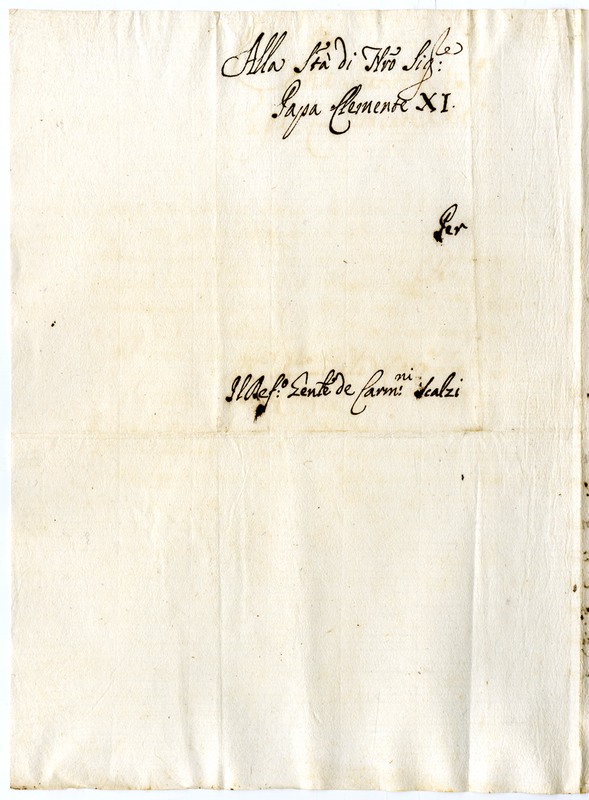 Alla Stà di Nrõ Sig.re
Papa Clemente XI.
Per
Il Def.o Gen.le de Carm.ni Scalzi